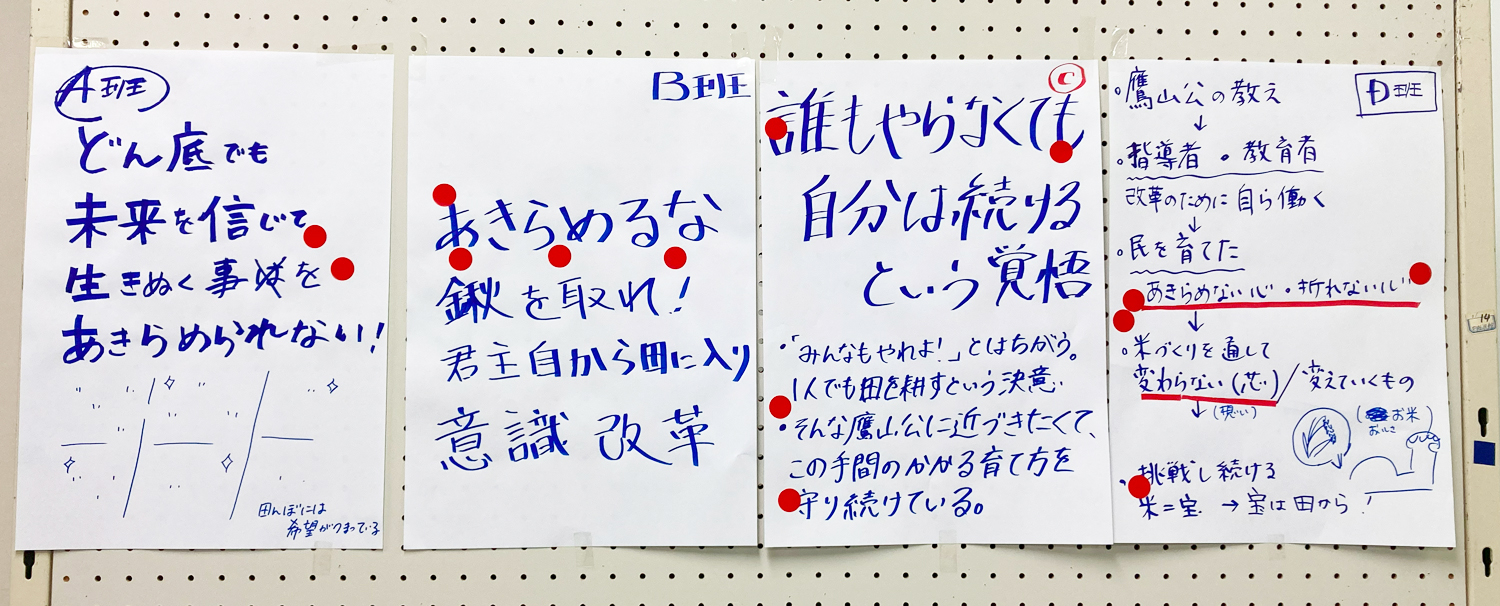 A班
どん底でも
未来を信じて
生きぬく事を
あきらめられない!
田んぼには
希望がつまっている
B班
あきらめるな
鍬を取れ!
君主自から田に入り
意識改革
C
誰もやらなくても
自分は続ける
という覚悟
・「みんなもやれよ!」とはちがう。
1人でも田を耕すという決意
・そんな鷹山公に近づきたくて、
この手間のかかる育て方を
守り続けている。
D班
・鷹山公の教え
↓
・指導者・教育者
改革のために自ら働く
↓
・民を育てた
あきらめない心・折れない心
↓
・米づくりを通して
変わらない(芯)/変えていくもの
↓(想い)
(お米
おいさ)
・挑戦し続ける
米=宝 → 宝は田から!
14